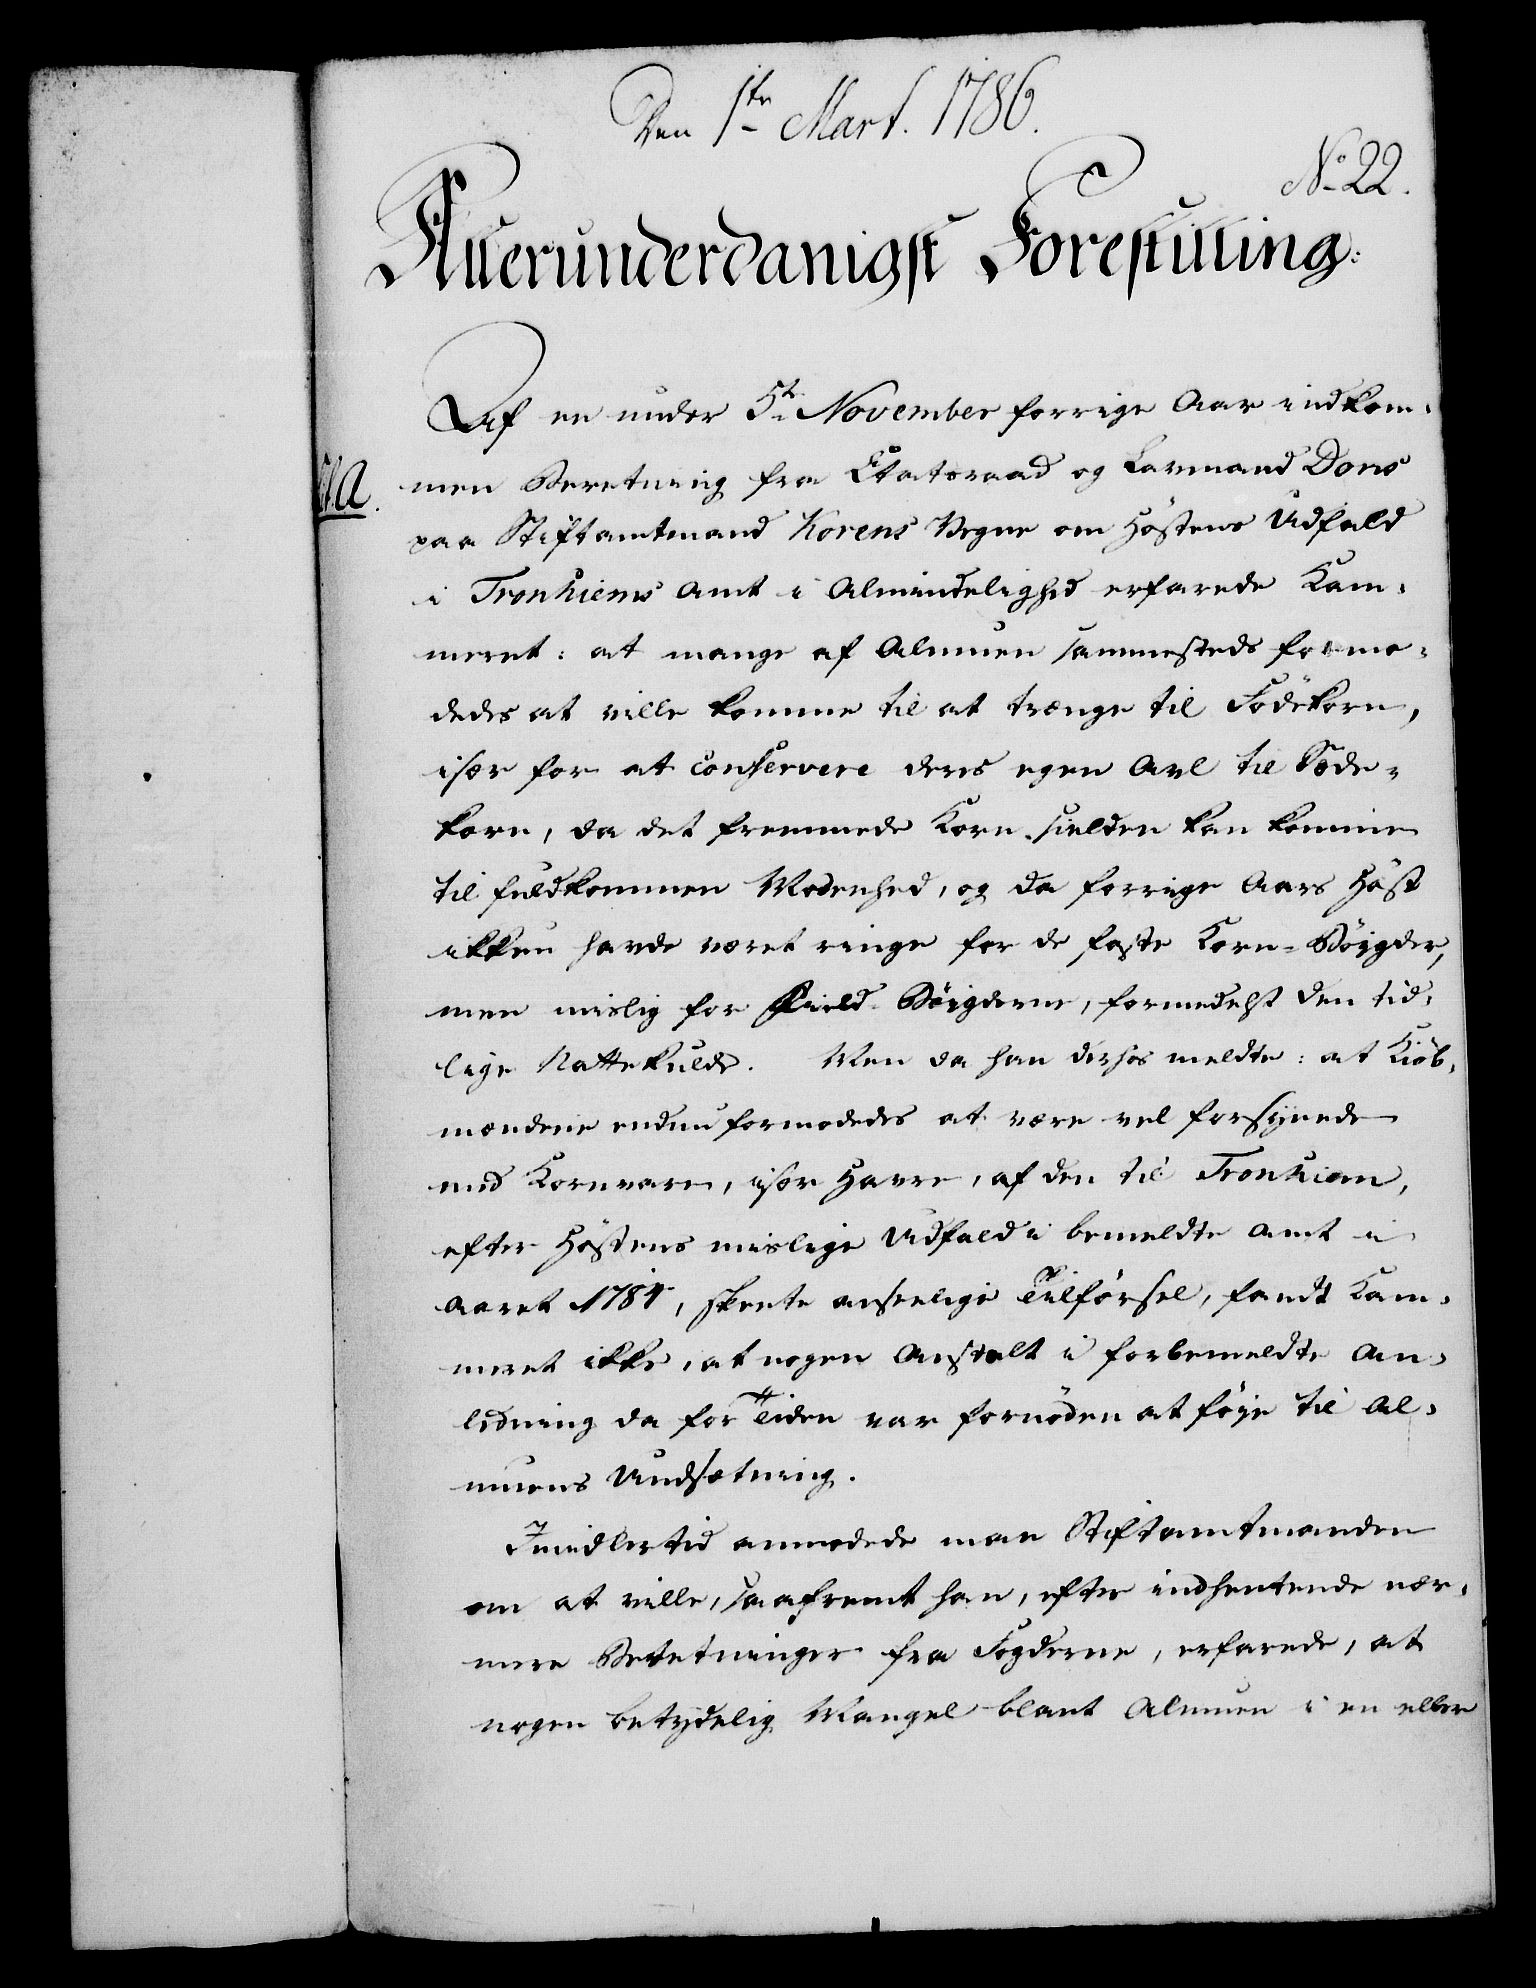 Den 1te Mart. 1786.
No 22.
Allerunderdanigst Forestilling:
Af en under 5te November forrige Aar indkom-
A.
men Beretning fra Etatsraad og Laumand Dons
paa Stiftamtmand Korens Vegne om Høstens Udfald
i Tronhiems Amt i Almindelighed erfarede Kam-
meret: at mange af Almuen sammesteds formo-
dedes at ville komme til at trænge til Födekorn,
især for at conservere deres egen Avl til Sæde-
korn, da det fremmede Korn sielden kan komme
til fuldkommen Modenhed, og da forrige Aars Høst
ikkun havde været ringe for de faste Korn-Böigder,
men mislig for Field-Böigderne, formedelst den tid-
lige Nattekulde. Men da han derhos meldte: at Kiöb-
mændene endnu formodedes at være vel forsynede
med Kornvare, især Havre, af den til Tronhiem,
efter Høstens mislige Udfald i bemeldte Amt i
Aaret 1784, skeete anseelige Tilførsel, fandt Kam-
meret ikke, at nogen Anstalt i forbemeldte An-
ledning da for Tiden var fornöden at føje til Al-
muens Undsætning.
Imidlertid anmodede man Stiftamtmanden
om at ville, saafremt han, efter indhentende nær-
mere Beretninger fra Fogderne, erfarede, at
nogen betydelig Mangel blant Almuen i en eller